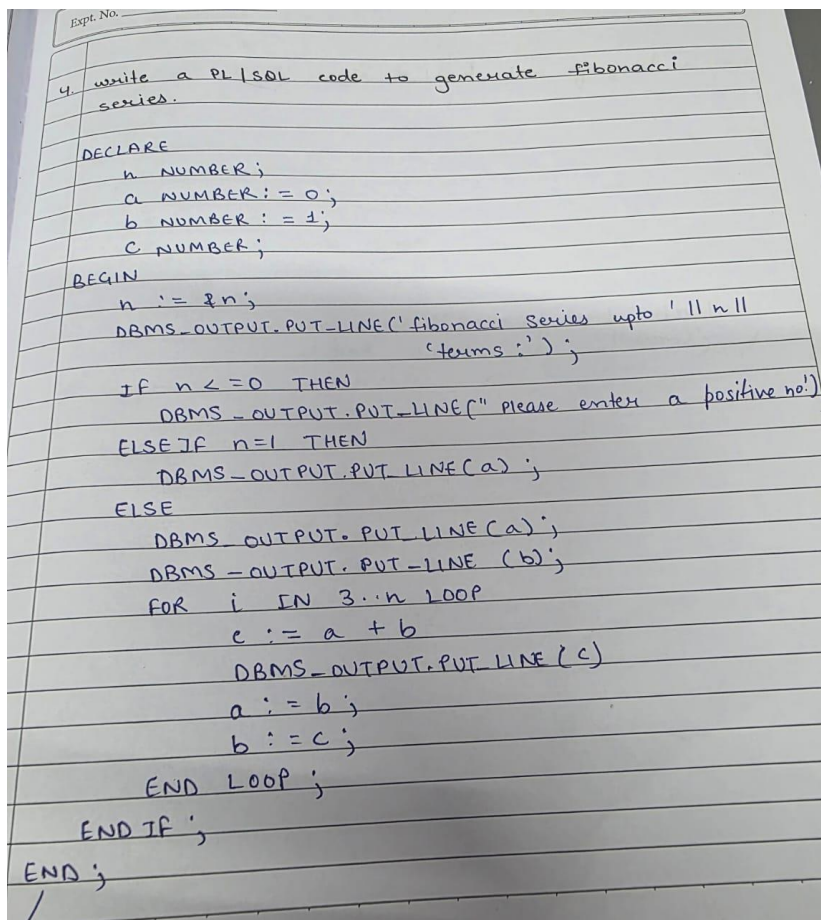 Expt. No.
4. write a PL|SQL code to generate fibonacci
series.
DECLARE
n NUMBER;
a NUMBER := 0;
b NUMBER := 1;
c NUMBER;
BEGIN
n := &n;
DBMS_OUTPUT.PUT_LINE('fibonacci series upto ' || n ||
'terms :');
IF n <= 0 THEN
DBMS_OUTPUT.PUT_LINE(" Please enter a positive no!)
ELSE IF n=1 THEN
DBMS_OUTPUT.PUT_LINE(a);
ELSE
DBMS_OUTPUT.PUT_LINE(a);
DBMS_OUTPUT.PUT_LINE (b);
FOR i IN 3..n LOOP
c := a + b
DBMS_OUTPUT.PUT_LINE (c)
a := b;
b := c;
END LOOP;
END IF;
END;
/